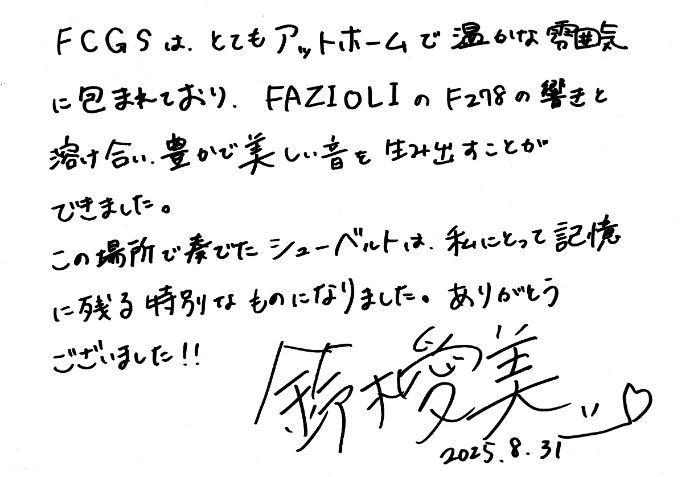 FCGSは、とてもアットホームで温かな雰囲気
に包まれており、FAZIOLIのF278の響きと
溶け合い、豊かで美しい音を生み出すことが
できました。
この場所で奏でたシューベルトは、私にとって記憶
に残る特別なものになりました。ありがとう
ございました!!
鈴木愛美
2025.8.31